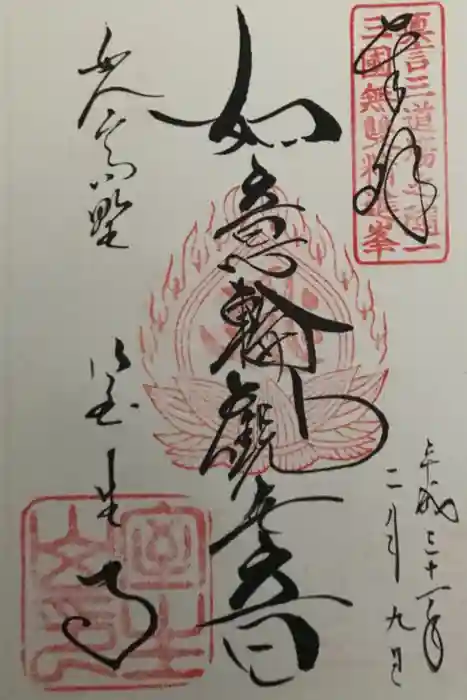 奉拝
真言三道場之随一
三國無雙精進峯
平成三十一年
二月九日
如意輪観世音
女人高野
室生寺